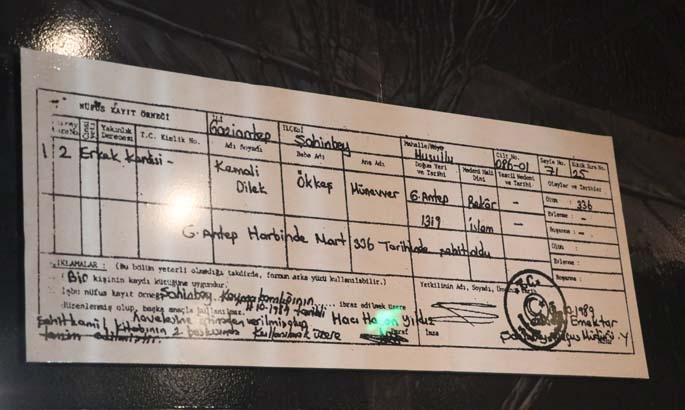 NÜFUS KAYIT ÖRNEĞİ
İLİ Gaziantep İLÇESİ Şahinbey Mahalle/Köyü Cilt No. 086-01 Sayfa No. 71 Kütük Sıra No. 25
Cinsiyeti Yakınlık Derecesi T.C. Kimlik No. Adı Soyadı Baba Adı Ana Adı Doğum Yeri ve Tarihi Medeni Hali Dini Tescil Nedeni ve Tarihi Olaylar ve Tarihler
1 2 Erkek Kendisi - Kemali Dilek Ökkeş Münevver G.Antep 1319 Bekâr İslam - Ölüm : 336
Evlenme : -
Boşanma : -
G.Antep Harbinde Mart 336 Tarihinde şehit oldu
Ölüm :
Evlenme :
Boşanma :
AÇIKLAMALAR : (Bu bölüm yeterli olmadığı takdirde, formun arka yüzü kullanılabilir.)
(Bir) kişinin kaydı kütüğüne uygundur.
İşbu nüfus kayıt örneği Şahinbey Kaymakamlığının ... ibraz edilmek üzere
düzenlenmiş olup, başka amaçla kullanılmaz. 10-1989 tarihli
havalesine verilmiştir Hacı Hasan Yıldız
Şehitkamil kitabının 2 Kullanılmak üzere
Yetkilinin Adı, Soyadı,
İmza
1989
Emektar